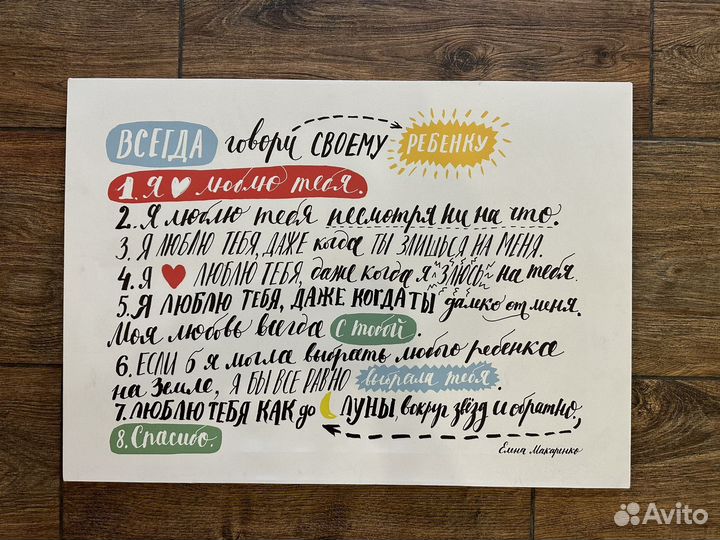 ВСЕГДА говори СВОЕМУ РЕБЕНКУ
1. Я люблю тебя.
2. Я люблю тебя несмотря ни на что.
3. Я ЛЮБЛЮ ТЕБЯ, ДАЖЕ когда ТЫ ЗЛИШЬСЯ НА МЕНЯ.
4. Я ЛЮБЛЮ ТЕБЯ, даже когда я ЗЛЮСЬ на тебя.
5. Я ЛЮБЛЮ ТЕБЯ, ДАЖЕ КОГДА ТЫ далеко от меня.
Моя любовь всегда с тобой.
6. ЕСЛИ б я могла выбрать любого ребенка
на Земле, Я БЫ ВСЕ РАВНО выбрала тебя.
7. ЛЮБЛЮ ТЕБЯ КАК до ЛУНЫ, вокруг звёзд и обратно,
8. Спасибо.
Елена Макаренко
Avito